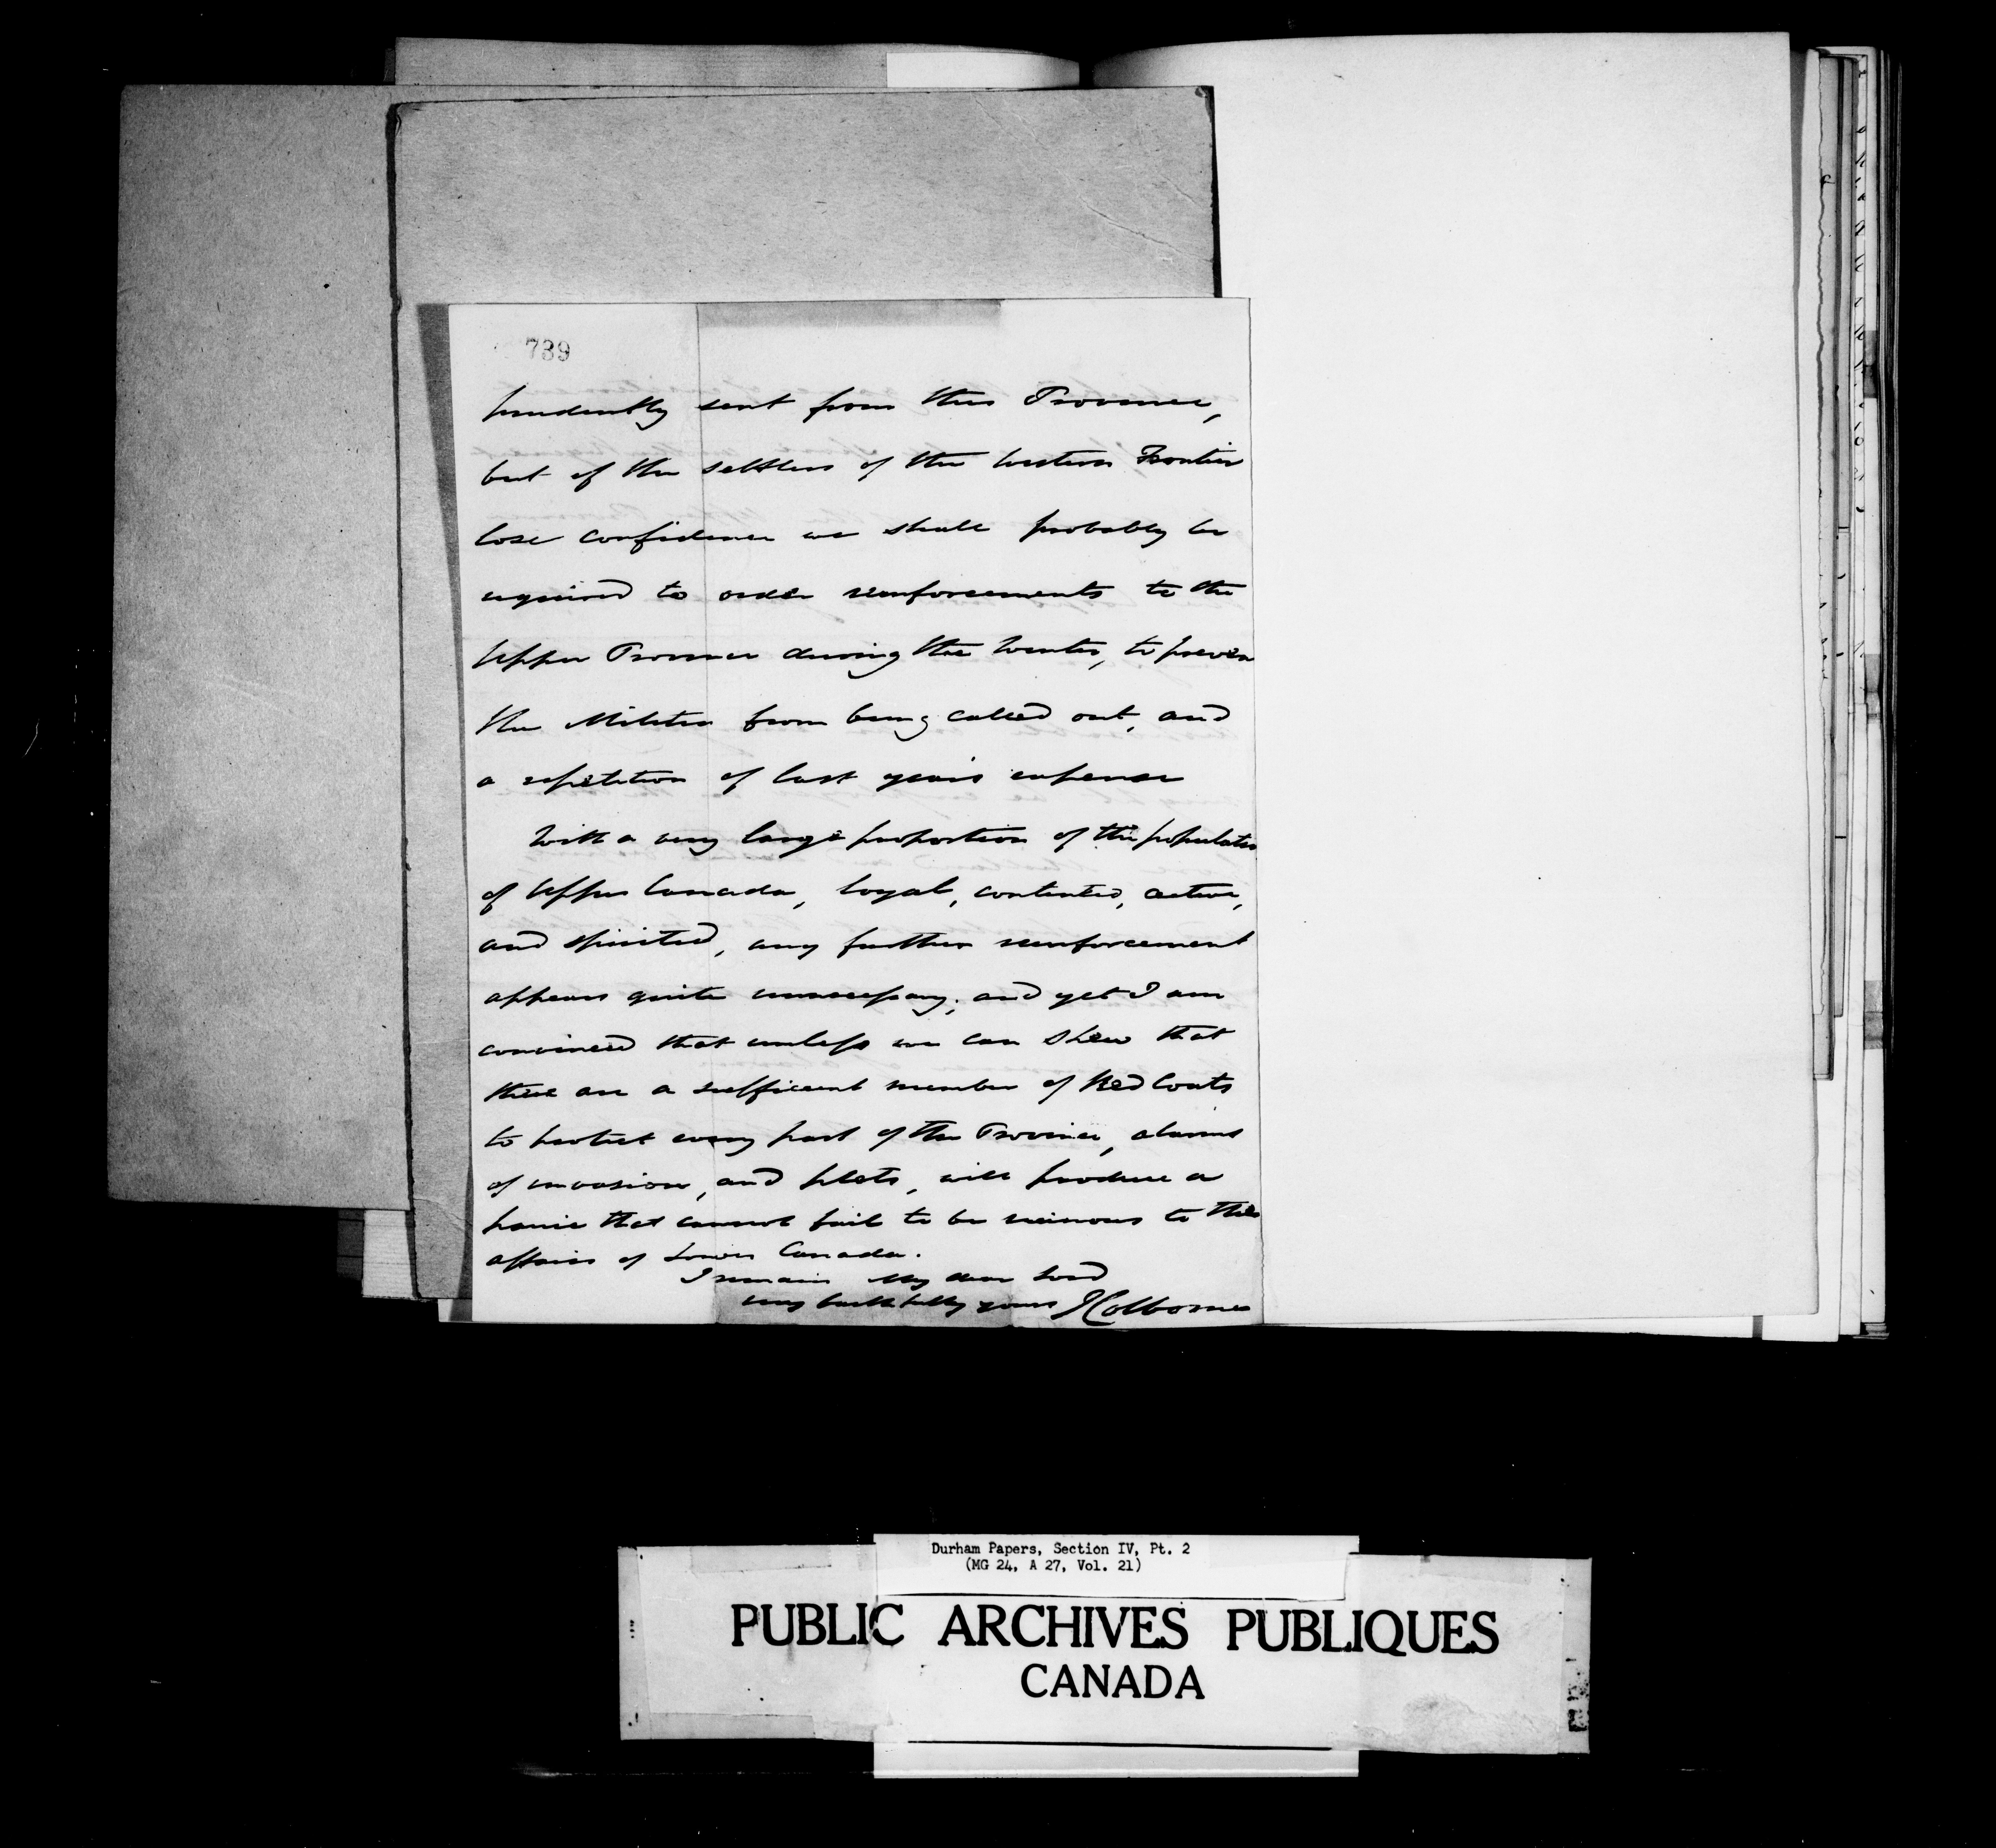 739
prudently sent from this Province,
but if the settlers of the Western Frontier
lose confidence we shall probably be
required to order reinforcements to the
Upper Province during the Winter, to preven
the Militia from being called out, and
a repetition of last years expense
With a very large proportion of the population
of Upper Canada, loyal, contented, active,
and spirited, any further reinforcement
appears quite unnecessary; and yet I am
convinced that unless we can shew that
there are a sufficient number of Red Coats
to protect every part of the Province, alarms
of invasion, and plots, will produce a
panic that cannot fail to be ruinous to the
affairs of Lower Canada.
I remain My dear Lord
very faithfully yours J Colborne
Durham Papers, Section IV, Pt. 2
(MG 24, A 27, Vol. 21)
PUBLIC ARCHIVES PUBLIQUES
CANADA